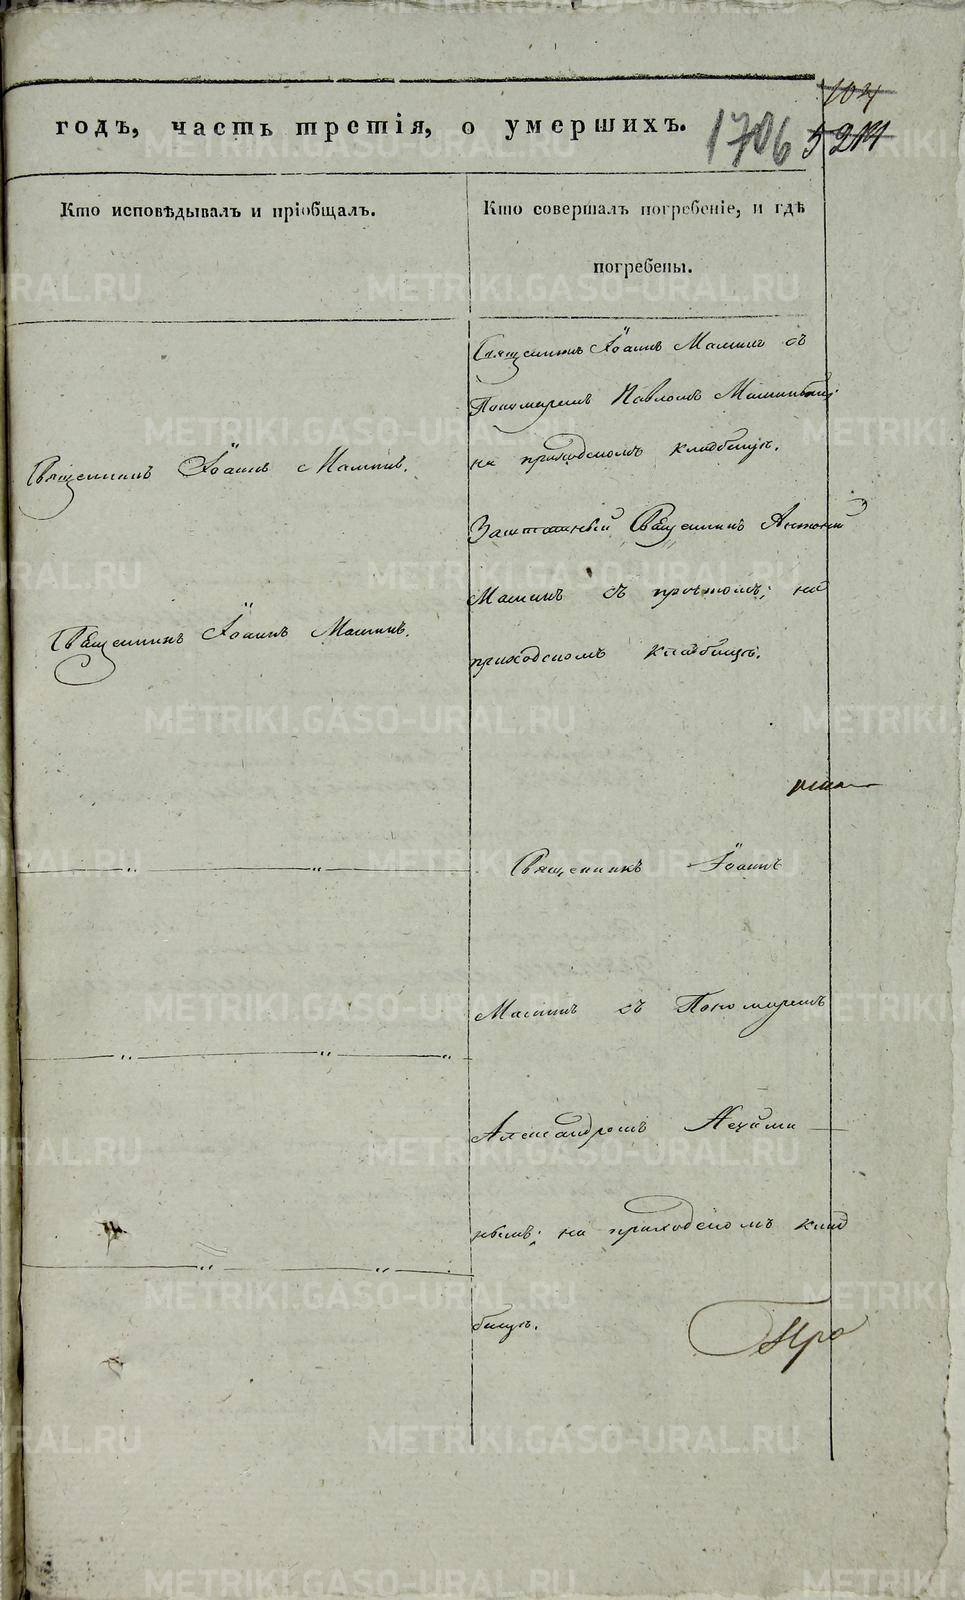 годъ, часть третія, о умершихъ.
1706
104
5211
Кто исповѣдывалъ и пріобщалъ.
Кто совершалъ погребеніе, и гдѣ
погребены.
Священникъ Іоаннъ Маминъ.
Священникъ Іоаннъ Маминъ.
Священникъ Іоаннъ Маминъ съ
Пономаремъ Павломъ
на приходскомъ кладбищѣ.
Заштатный Священникъ Антоній
Маминъ съ причтомъ; на
приходскомъ кладбищѣ.
Священникъ Іоаннъ
Маминъ съ Пономаремъ
Александромъ
нымъ; на приходскомъ клад
бищѣ.
Про
METRIKI.GASO-URAL.RU